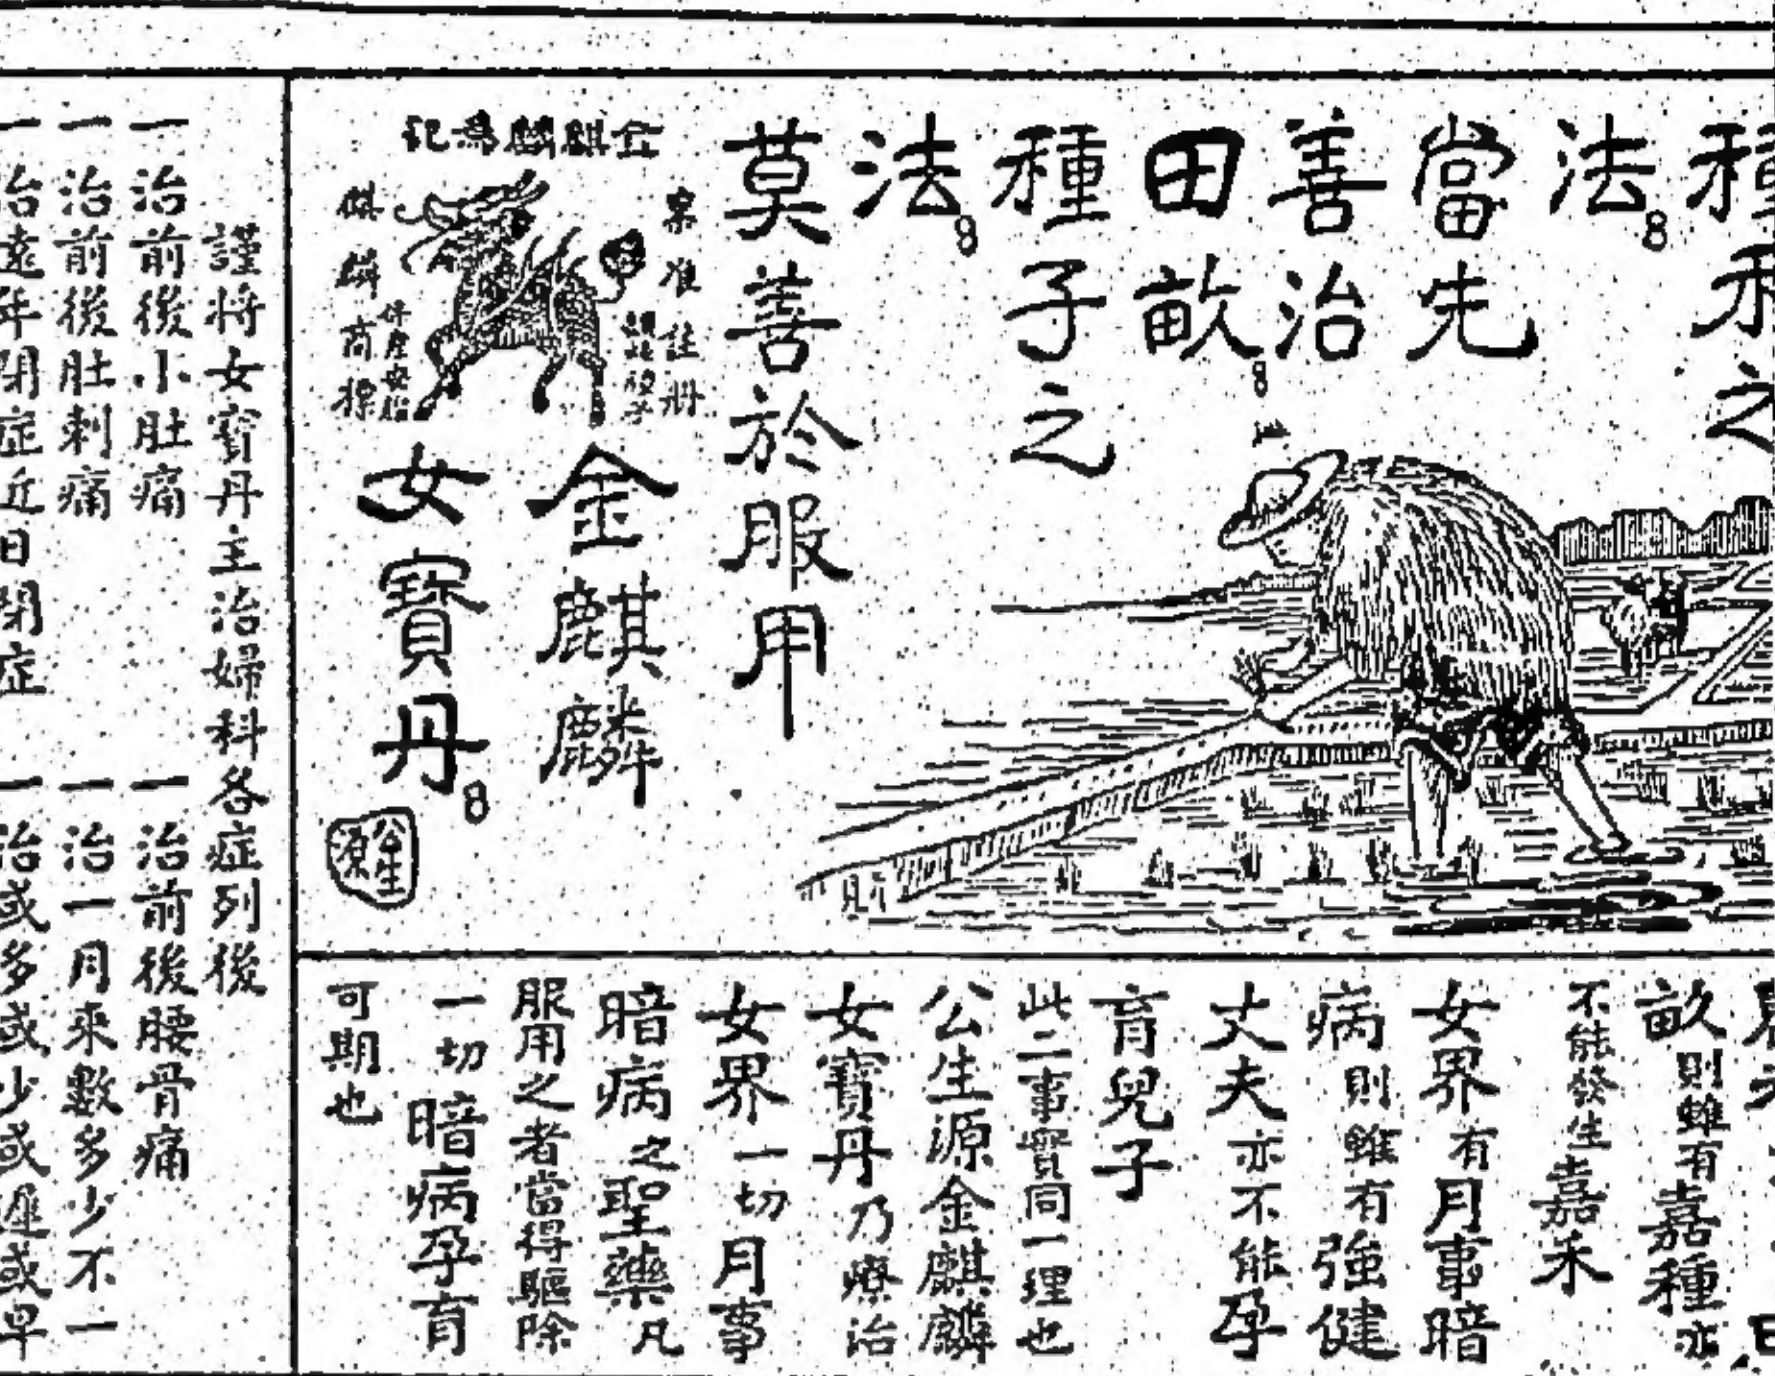 種禾之
法
當先
善治
田畝
種子之
法
莫善於服用
金麒麟
女寶丹
金麒麟為記
案准註冊
麒麟商標
公生源
畝則雖有嘉種亦
不能發生嘉禾
女界有月事暗
病則雖有強健
丈夫亦不能孕
育兒子
此二事實同一理也
公生源金麒麟
女寶丹乃療治
女界一切月事
暗病之聖藥凡
服用之者當得驅除
一切暗病孕育
可期也
謹將女寶丹主治婦科各症列後
一治前後小肚痛 一治前後腰骨痛
一治前後肚刺痛 一治一月來數多少不一
一治遠年閉症近日閉症 一治或多或少或遲或早